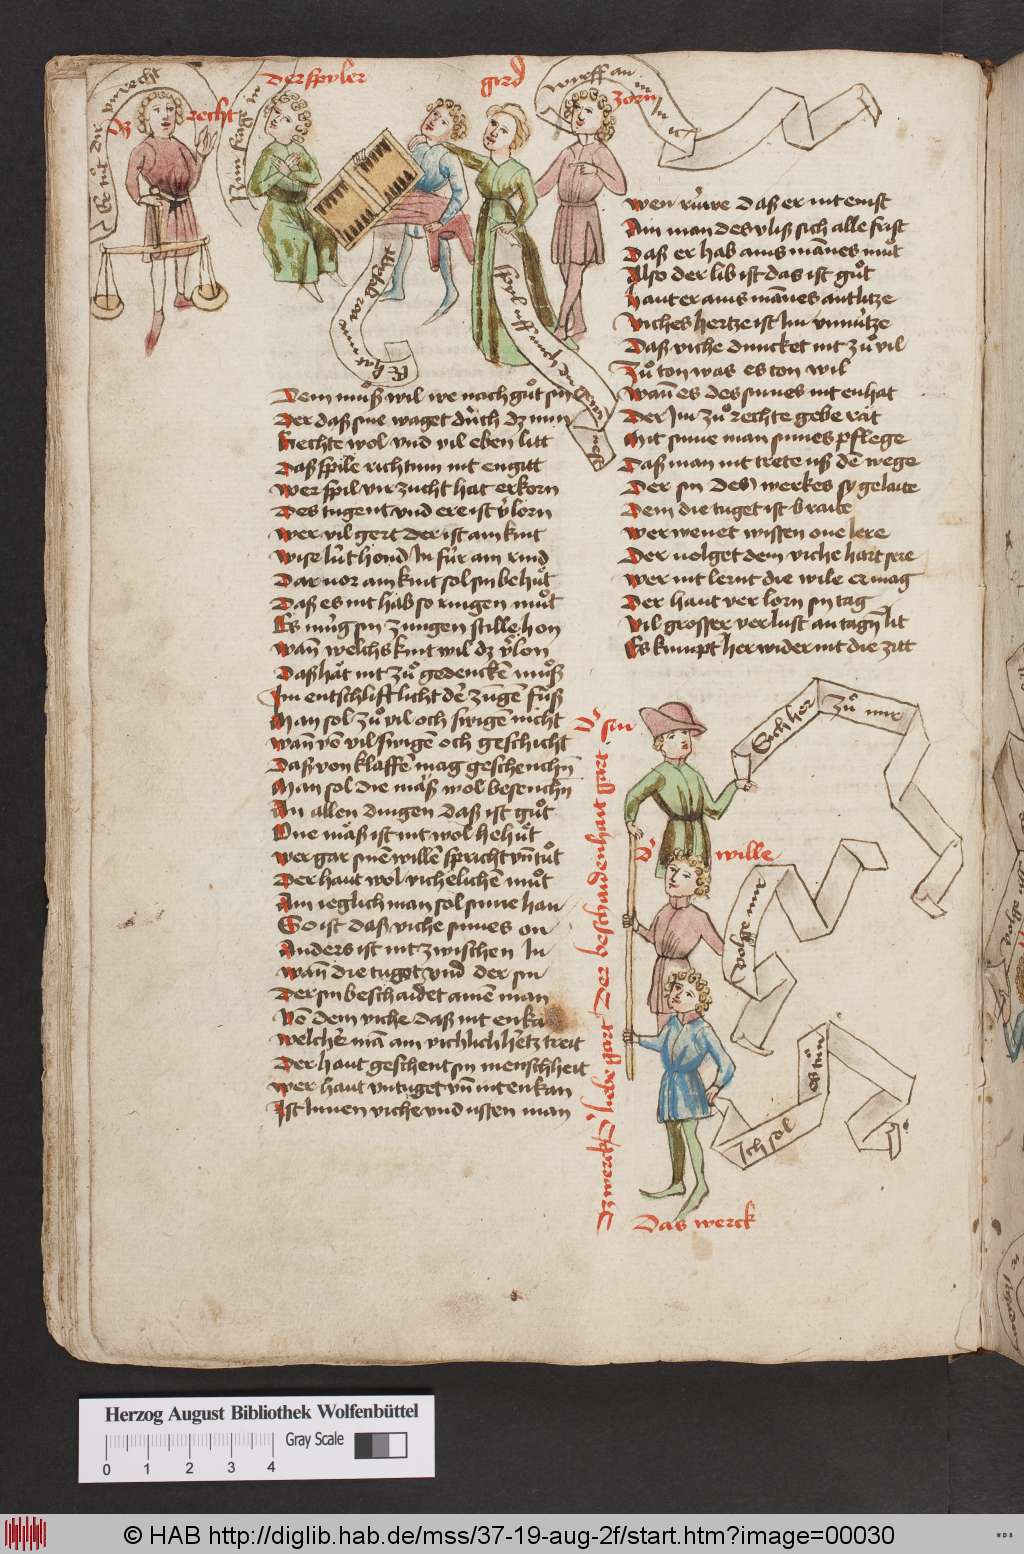 Er tuͦt dir vnrecht
dz recht
zuͦm frage in
der spyler
gird
wirff an
zorn
Er hat mir
Dem muͦß wil we nach guͦt sin
Der daß sine waget durch dz min
Rechte wol vnd vil eben litt
Daß spile richtum nit engitt
wer spil vir zucht hat erkorn
Des tugent vnd ere ist vͤlorn
wer vil gert der ist am kint
wise luͤt hond In fuͤr am rind
Dar vor am kint sol sin behuͦt
Daß es nit hab so ringen muͦt
Es muͤg sin zungen stille hon
wan̄ welchs kint wil dz vͤlon
Daß haͤt nit zuͦ gedencken muͦß
Im entschlifft licht der zungē fuͦß
Man sol zuͦ vil och swigen nicht
wan̄ võ vil swigē och geschicht
Daß von klaffē mag geschenchn̄
Man sol die maͤß wol besenchn̄
An allen dingen daß ist guͦt
One maͤß ist nit wol behuͦt
wer gar sinē willē spricht vn̄ tuͦt
Der haut wol vichelichē muͦt
Am ieglich man sol sinne han
So ist daß viche sinnes on
Anders ist nit zwischen In
wan̄ die tuget vnd der sin
Der sin beschaidet ainē man
Võ dem viche daß nit enka
welchͤr mā am vichlich hertz treit
Der haut geschent sin menschheit
wer haut vntuget vn̄ nit enkan
Ist Innen viche vnd vssen man
wen ruͤwe daß er nit enist
Am man des vliß sich alle frist
Daß er hab ains mānes muͦt
Also der lib ist das ist guͦt
haut er ains mānes antlitze
viches hertze ist Im vnnuͤtze
Daß viche duncket nit zuͦ vil
Zuͦ ton was es ton wil
wan̄ es des sinnes nit enhat
Der Im zuͦ rechte gebe rat
Mit sinne man sinnes pflege
Daß man nit trete uß dē wege
Der sin des werkes sy gelaite
Dem die tuget ist braite
wer wenet wissen one lere
Der volget dem viche hart sere
wer nit lernt die wile er mag
Der haut ver lorn sin tag
Vil grosser verlust an tagn̄ lit
Es kumpt her wider nit die zitt
Dͤ sin
Sich her zuͦ mir
dͤ wille
volge mir
Ich sol es tuͦn
Das werck
Dz werck Dͤ liebe gart Der beschaidenhait gart
Herzog August Bibliothek Wolfenbüttel
Gray Scale
0 1 2 3 4
© HAB http://diglib.hab.de/mss/37-19-aug-2f/start.htm?image=00030